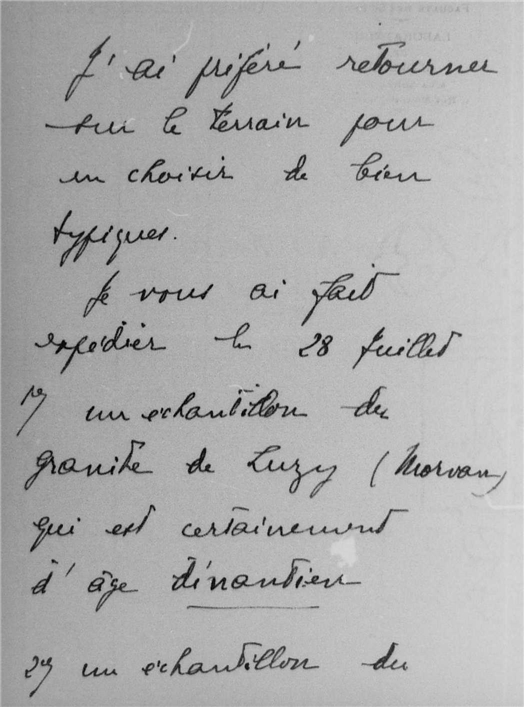 J'ai préféré retourner
sur le terrain pour
en choisir de bien
typiques.
Je vous ai fait
expédier le 28 Juillet
1°) un echantillon du
granite de Luzy (Morvan)
qui est certainement
d'âge dinantien
2°) un echantillon du